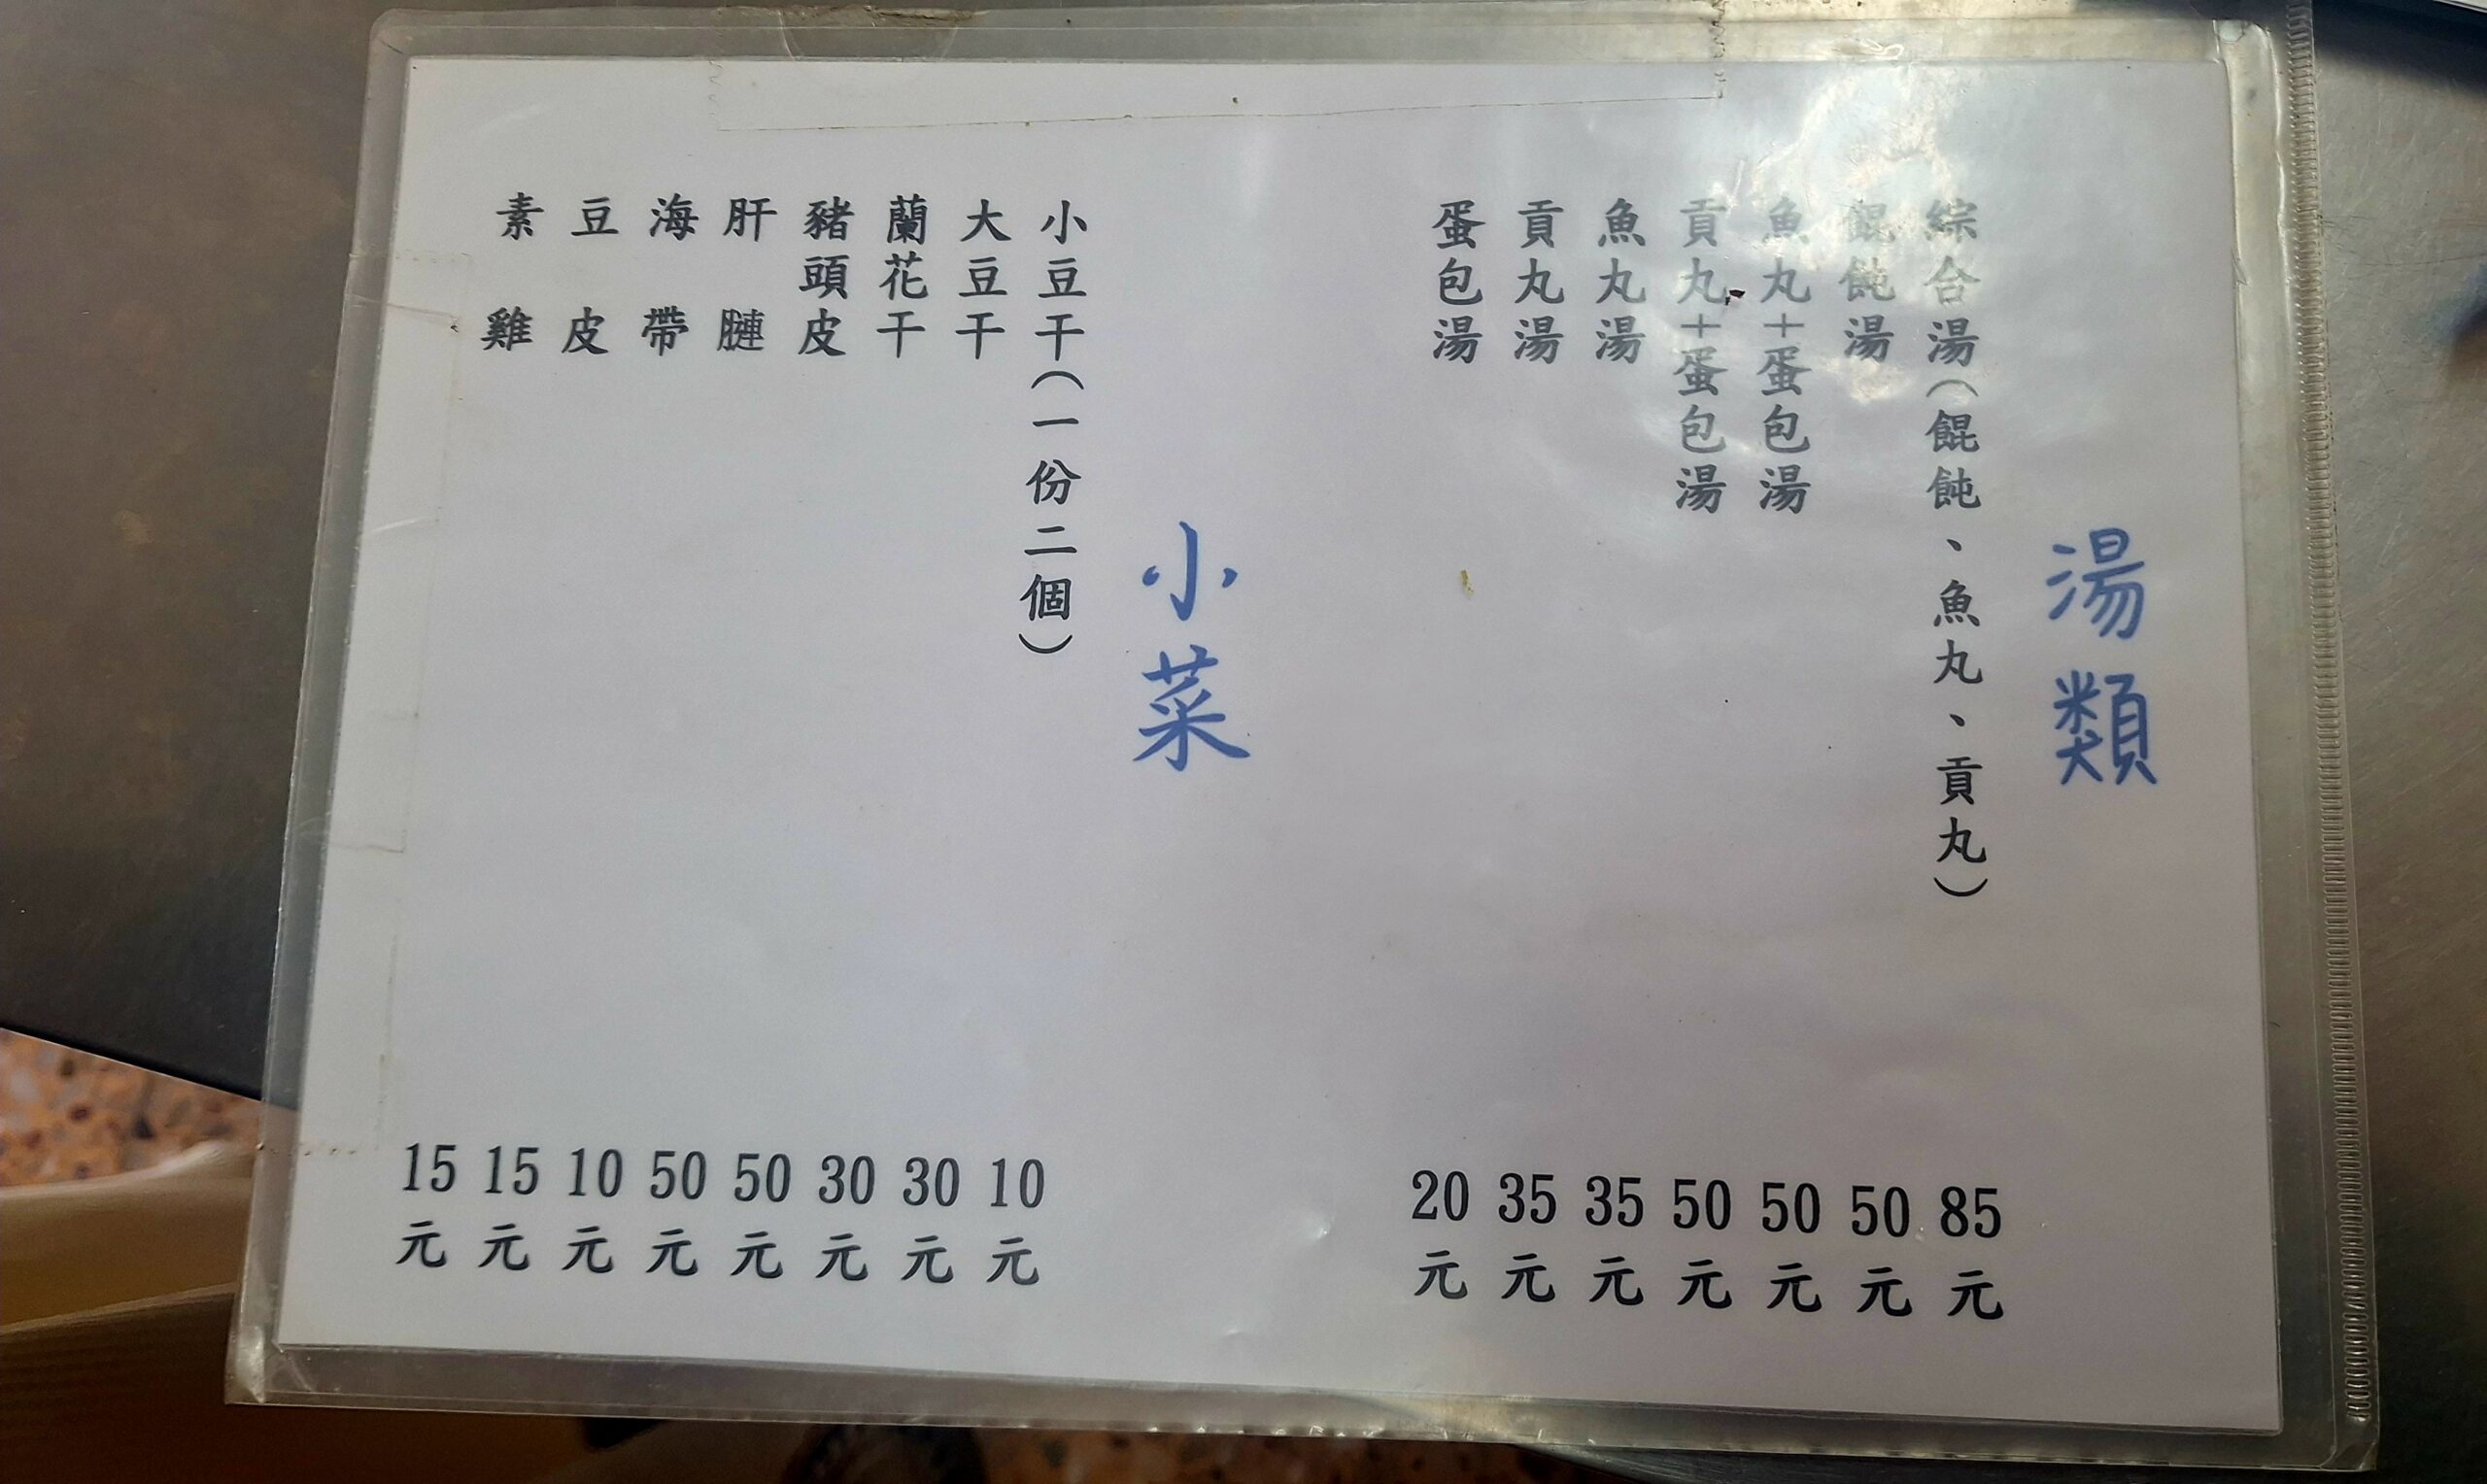 湯類
綜合湯(餛飩、魚丸、貢丸) 85元
餛飩湯 50元
魚丸+蛋包湯 50元
貢丸+蛋包湯 50元
魚丸湯 35元
貢丸湯 35元
蛋包湯 20元
小菜
小豆干(一份二個) 10元
大豆干 30元
蘭花干 30元
豬頭皮 50元
肝腱 50元
海帶 10元
豆皮 15元
素雞 15元